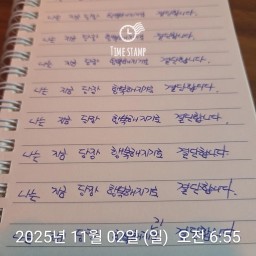 나는 지금 당장 행복해지기로 결단합니다.
TIME STAMP
나는 지금 당장 행복해지기로 결단합니다.
나는 지금 당장 행복해지기로 결단합니다.
나는 지금 당장 행복해지기로 결단합니다.
나는 지금 당장 행복해지기로 결단합니다.
나는 지금 당장 행복해지기로 결단합니다.
나는 지금 당장 행복해지기로 결단합니다.
나는 지금 당장 행복해지기로 결단합니다.
나는 지금 당장 결단합니다.
2025년 11월 02일 (일) 오전 6:55